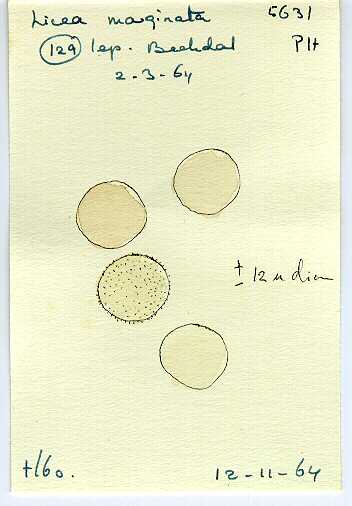 Licea marginata 5631
129 lep. Beekdal P1t
2-3-64
± 12 u diam
+/60.
12-11-64